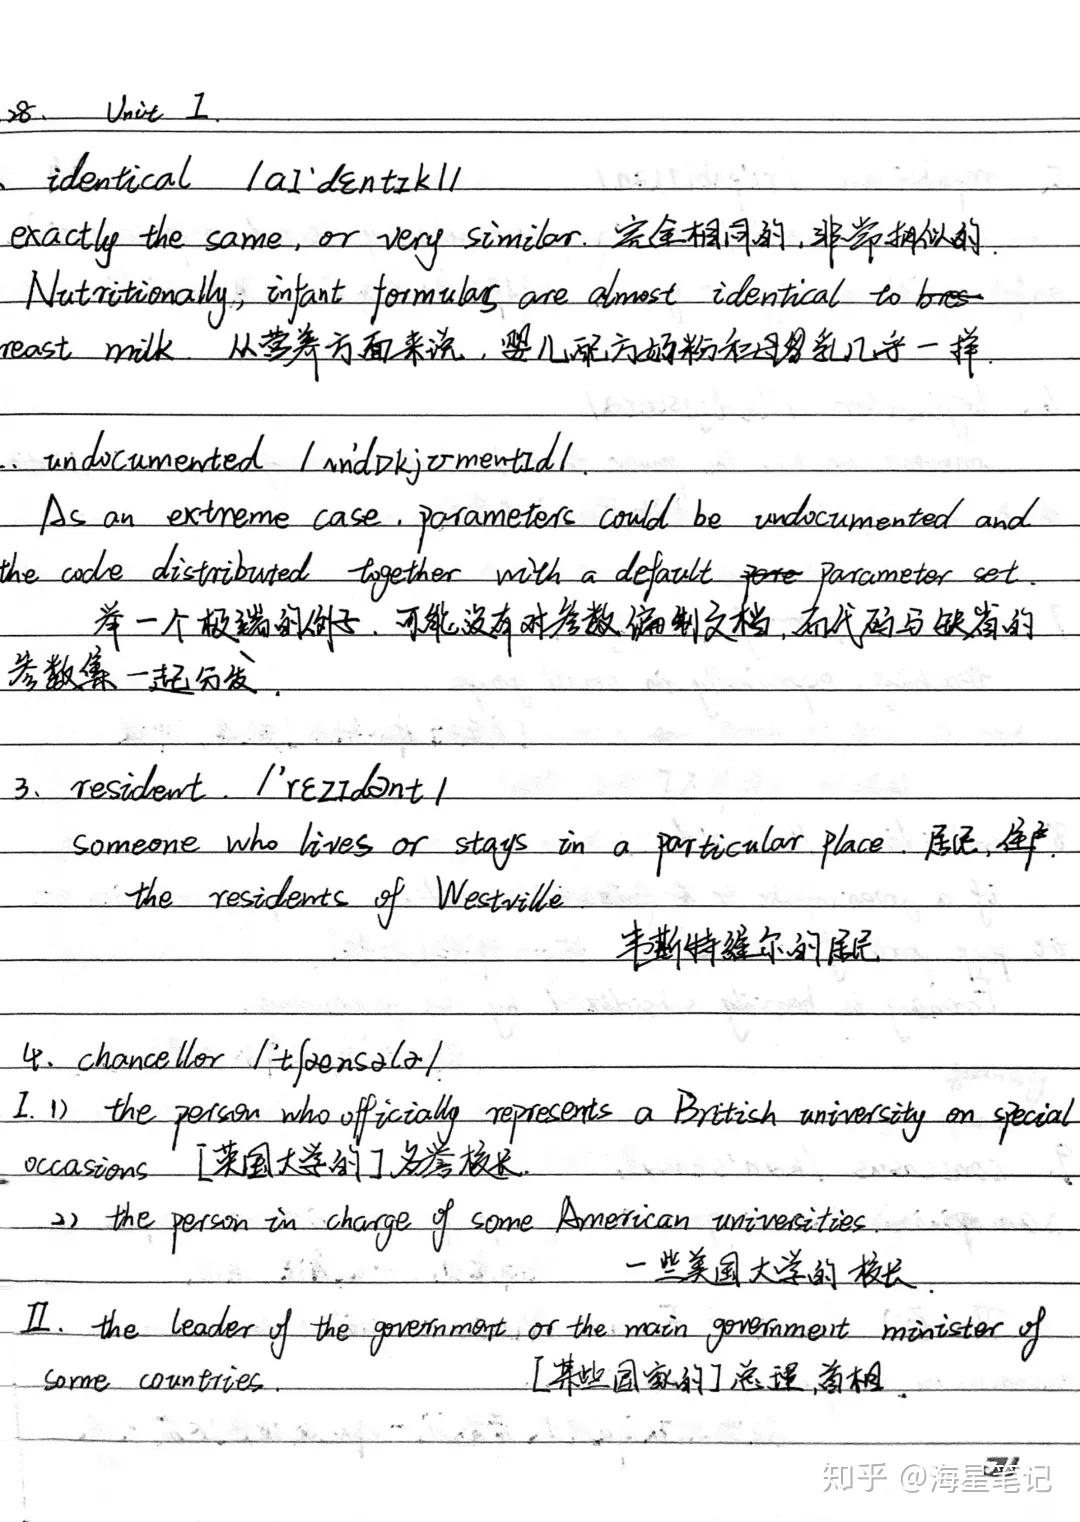 28. Unit 1.
identical /aɪ'dɛntɪkl/
exactly the same, or very similar. 完全相同的,非常相似的.
Nutritionally, infant formulas are almost identical to bres
reast milk. 从营养方面来说,婴儿配方奶粉和母乳几乎一样.
undocumented /ʌn'dɒkjʊmentɪd/.
As an extreme case, parameters could be undocumented and
the code distributed together with a default pare parameter set.
举一个极端的例子,可能没有对参数编制文档,而代码与缺省的
参数集一起分发.
3. resident. /'rɛzɪdənt/
someone who lives or stays in a particular place. 居民,住户.
the residents of Westville
韦斯特维尔的居民
4. chancellor /'tʃaensələ/.
I. 1) the person who officially represents a British university on special
occasions [英国大学的]名誉校长.
2) the person in charge of some American universities.
一些美国大学的校长.
II. the leader of the government or the main government minister of
some countries. [某些国家的]总理,首相.
知乎 @海星笔记